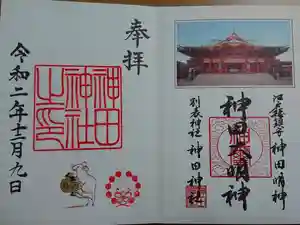 奉拝
神田神社之印
令和二年十二月九日
江戸総鎮守 神田明神
神田大明神
別表神社 神田神社